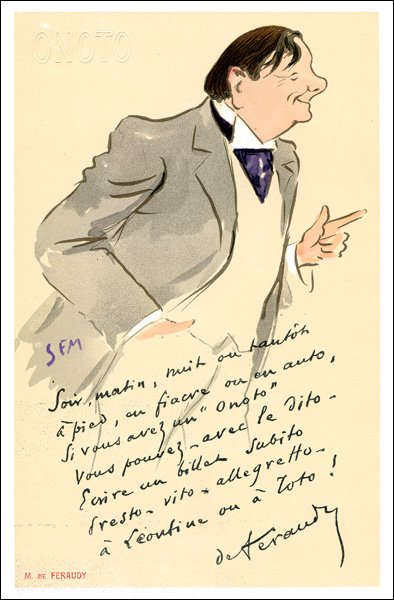 ONOTO
SEM
Soir, matin, nuit ou tantôt
à pied, en fiacre ou en auto,
Si vous avez un "Onoto"
Vous pouvez - avec le dito -
Ecrire un billet subito
Presto - vito - allegretto -
à Léontine ou à Toto !
de Féraudy
M. DE FERAUDY